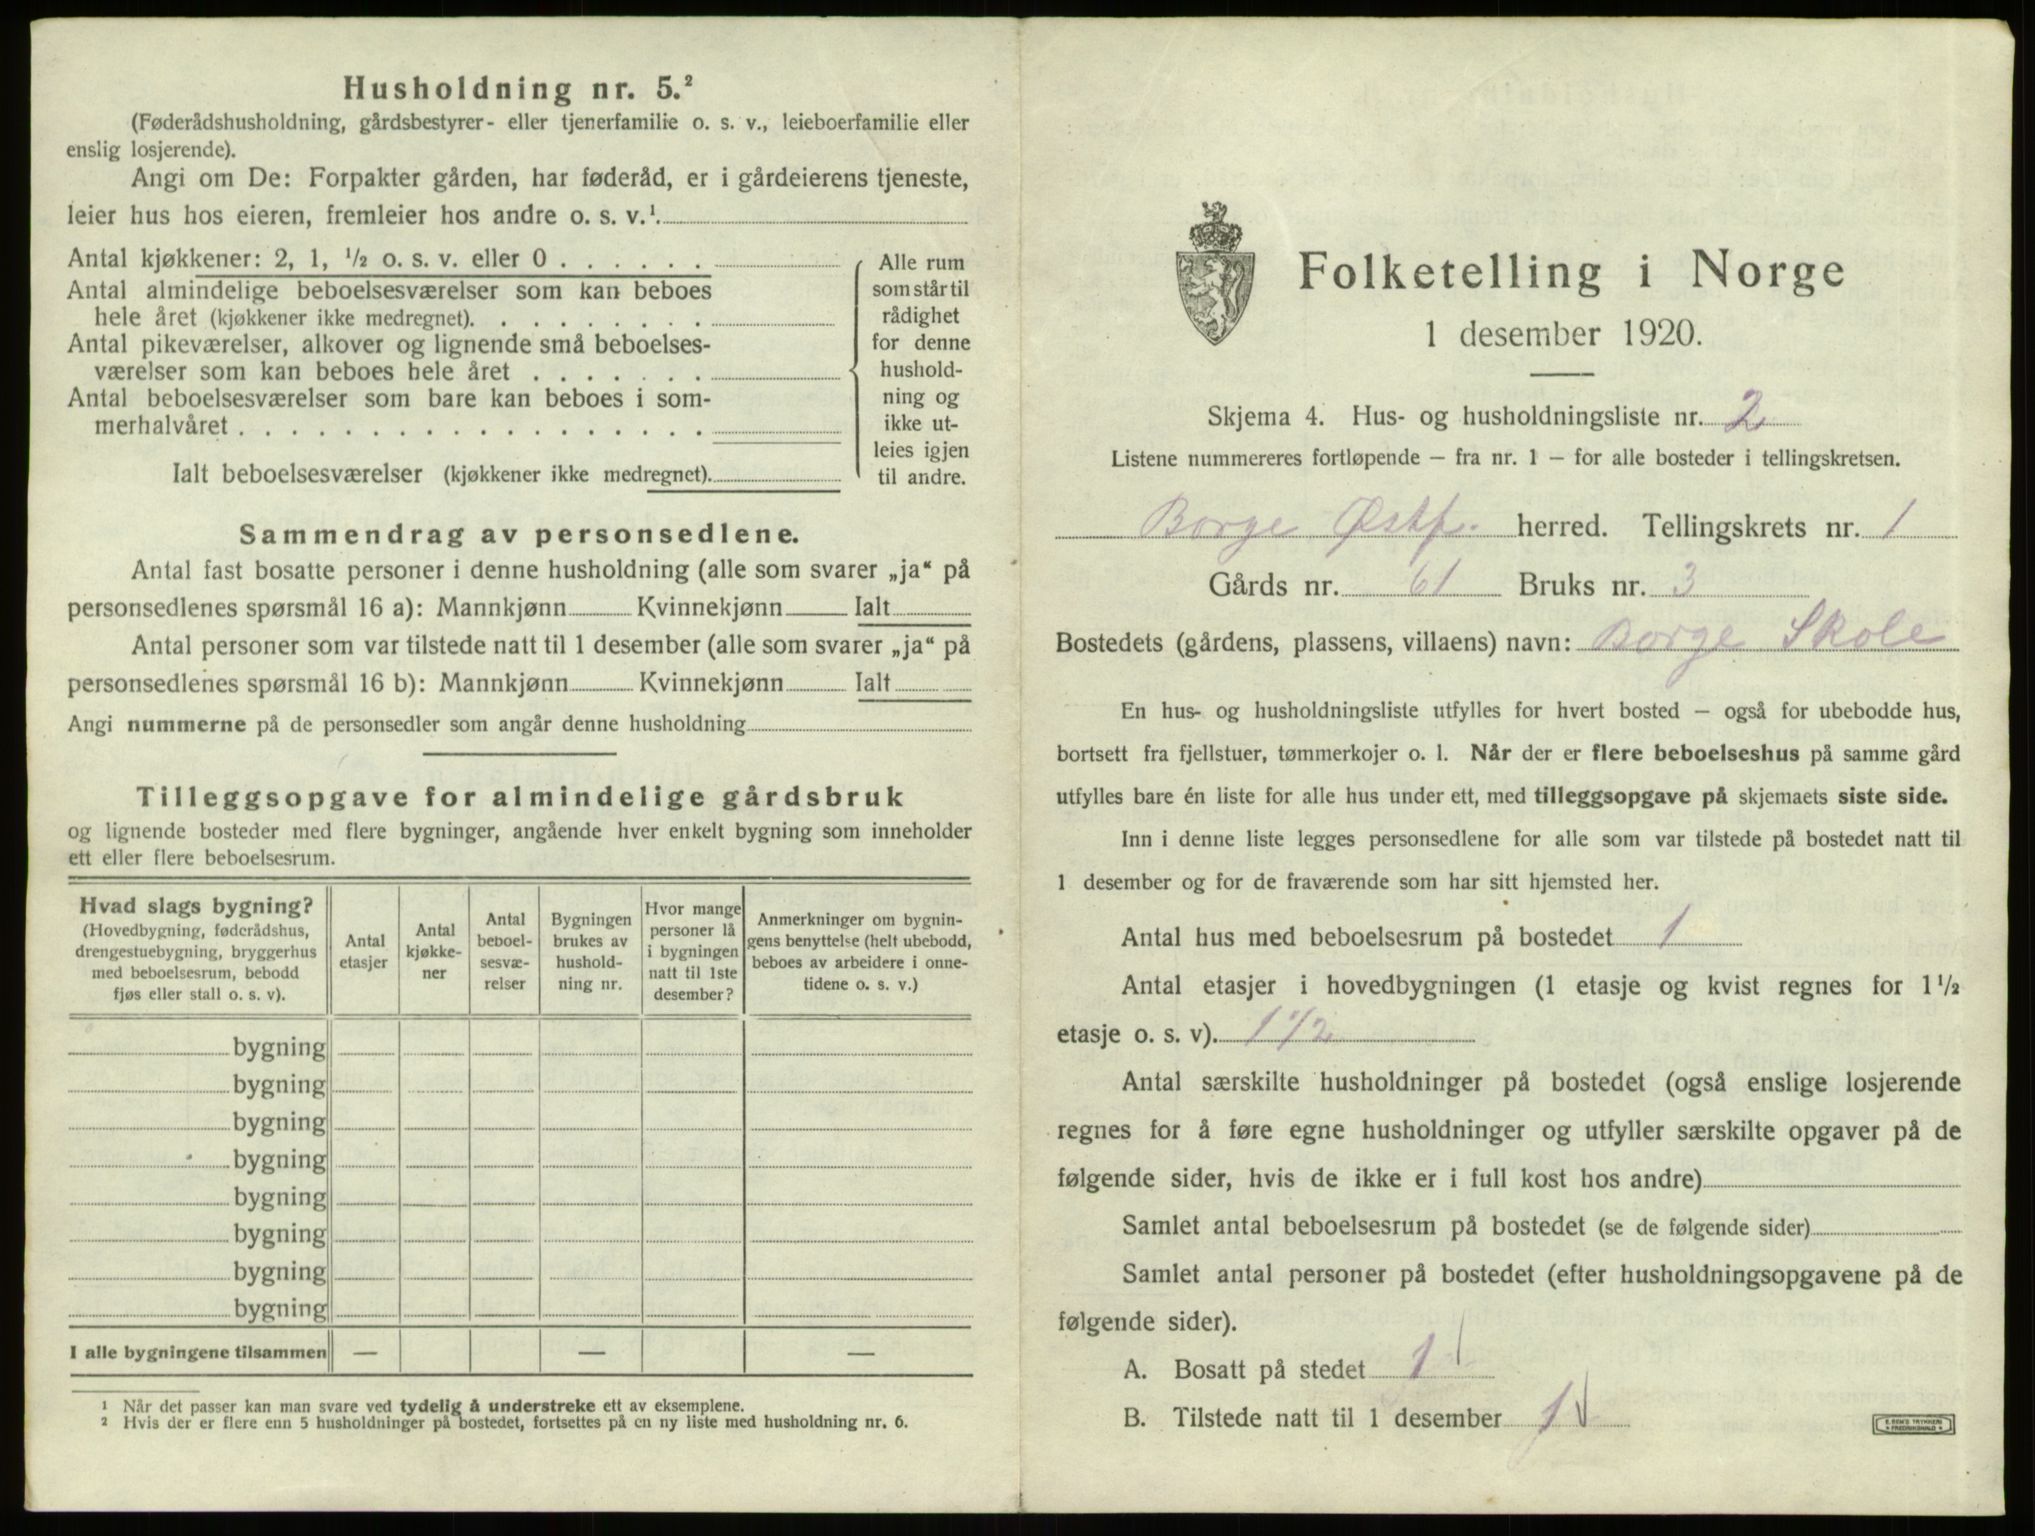 Husholdning nr. 5.²
(Føderådshusholdning, gårdsbestyrer- eller tjenerfamilie o. s. v., leieboerfamilie eller
enslig losjerende).
Angi om De: Forpakter gården, har føderåd, er i gårdeierens tjeneste,
leier hus hos eieren, fremleier hos andre o. s. v.¹
Antal kjøkkener: 2, 1, ½ o. s. v. eller 0 . . . . . .
Antal almindelige beboelsesværelser som kan beboes
hele året (kjøkkener ikke medregnet). . . . . . . . . .
Antal pikeværelser, alkover og lignende små beboelses-
værelser som kan beboes hele året . . . . . . .
Antal beboelsesværelser som bare kan beboes i som-
merhalvåret . . . . . . . . . . . . . . . . . .
Ialt beboelsesværelser (kjøkkener ikke medregnet).
Alle rum
som står til
rådighet
for denne
hushold-
ning og
ikke ut-
leies igjen
til andre.
Sammendrag av personsedlene.
Antal fast bosatte personer i denne husholdning (alle som svarer „ja“ på
personsedlenes spørsmål 16 a): Mannkjønn Kvinnekjønn Ialt
Antal personer som var tilstede natt til 1 desember (alle som svarer „ja“ på
personsedlenes spørsmål 16 b): Mannkjønn Kvinnekjønn Ialt
Angi nummerne på de personsedler som angår denne husholdning
Tilleggsopgave for almindelige gårdsbruk
og lignende bosteder med flere bygninger, angående hver enkelt bygning som inneholder
ett eller flere beboelsesrum.
Hvad slags bygning?
(Hovedbygning, føderådshus,
drengestuebygning, bryggerhus
med beboelsesrum, bebodd
fjøs eller stall o. s. v).
Antal
etasjer
Antal
kjøkke-
ner
Antal
beboel-
sesvæ-
relser
Bygningen
brukes av
hushold-
ning nr.
Hvor mange
personer lå
i bygningen
natt til 1ste
desember?
Anmerkninger om bygnin-
gens benyttelse (helt ubebodd,
beboes av arbeidere i onne-
tidene o. s. v.)
bygning
bygning
bygning
bygning
bygning
bygning
bygning
bygning
I alle bygningene tilsammen — — —
¹ Når det passer kan man svare ved tydelig å understreke ett av eksemplene.
² Hvis der er flere enn 5 husholdninger på bostedet, fortsettes på en ny liste med husholdning nr. 6.
Folketelling i Norge
1 desember 1920.
Skjema 4. Hus- og husholdningsliste nr. 2
Listene nummereres fortløpende — fra nr. 1 — for alle bosteder i tellingskretsen.
Borge Østf. herred. Tellingskrets nr. 1
Gårds nr. 61 Bruks nr. 3
Bostedets (gårdens, plassens, villaens) navn: Borge Skole
En hus- og husholdningsliste utfylles for hvert bosted — også for ubebodde hus,
bortsett fra fjellstuer, tømmerkojer o. l. Når der er flere beboelseshus på samme gård
utfylles bare én liste for alle hus under ett, med tilleggsopgave på skjemaets siste side.
Inn i denne liste legges personsedlene for alle som var tilstede på bostedet natt til
1 desember og for de fraværende som har sitt hjemsted her.
Antal hus med beboelsesrum på bostedet 1
Antal etasjer i hovedbygningen (1 etasje og kvist regnes for 1½
etasje o. s. v). 1 1/2
Antal særskilte husholdninger på bostedet (også enslige losjerende
regnes for å føre egne husholdninger og utfyller særskilte opgaver på de
følgende sider, hvis de ikke er i full kost hos andre)
Samlet antal beboelsesrum på bostedet (se de følgende sider)
Samlet antal personer på bostedet (efter husholdningsopgavene på de
følgende sider).
A. Bosatt på stedet 1
B. Tilstede natt til 1 desember 1
E. SEM'S TRYKKERI
FREDRIKSHALD